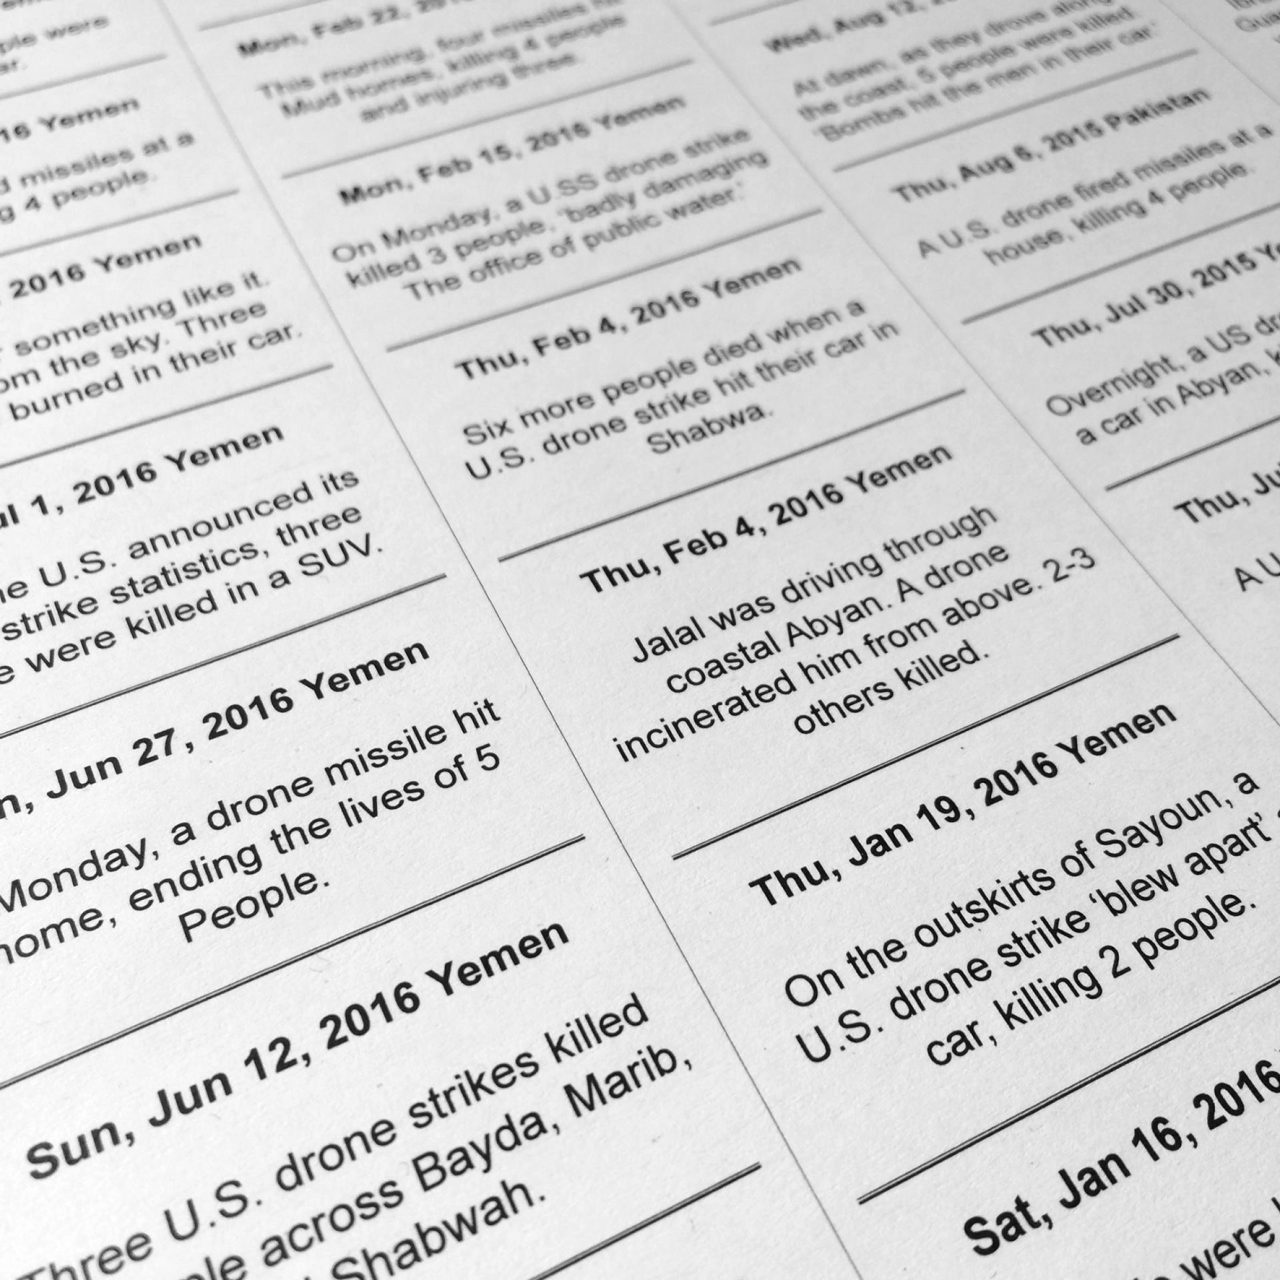 ple were
16 Yemen
missiles at a
g 4 people.
2016 Yemen
something like it.
om the sky. Three
burned in their car.
1, 2016 Yemen
U.S. announced its
strike statistics, three
were killed in a SUV.
Jun 27, 2016 Yemen
Monday, a drone missile hit
home, ending the lives of 5
People.
Sun, Jun 12, 2016 Yemen
Three U.S. drone strikes killed
ple across Bayda, Marib,
Shabwah.
Mon, Feb 22,
This morning, four missiles hit
Mud homes, killing 4 people
and injuring three.
Mon, Feb 15, 2016 Yemen
On Monday, a U.SS drone strike
killed 3 people, 'badly damaging
The office of public water.'
Thu, Feb 4, 2016 Yemen
Six more people died when a
U.S. drone strike hit their car in
Shabwa.
Thu, Feb 4, 2016 Yemen
Jalal was driving through
coastal Abyan. A drone
incinerated him from above. 2-3
others killed.
Thu, Jan 19, 2016 Yemen
On the outskirts of Sayoun, a
U.S. drone strike 'blew apart'
car, killing 2 people.
Sat, Jan 16, 2016
were
Wed, Aug 12,
At dawn, as they drove along
the coast, 5 people were killed.
'Bombs hit the men in their car.'
Thu, Aug 6, 2015 Pakistan
A U.S. drone fired missiles at a
house, killing 4 people.
Thu, Jul 30, 2015
Overnight, a US
a car in Abyan,
Thu,
A U